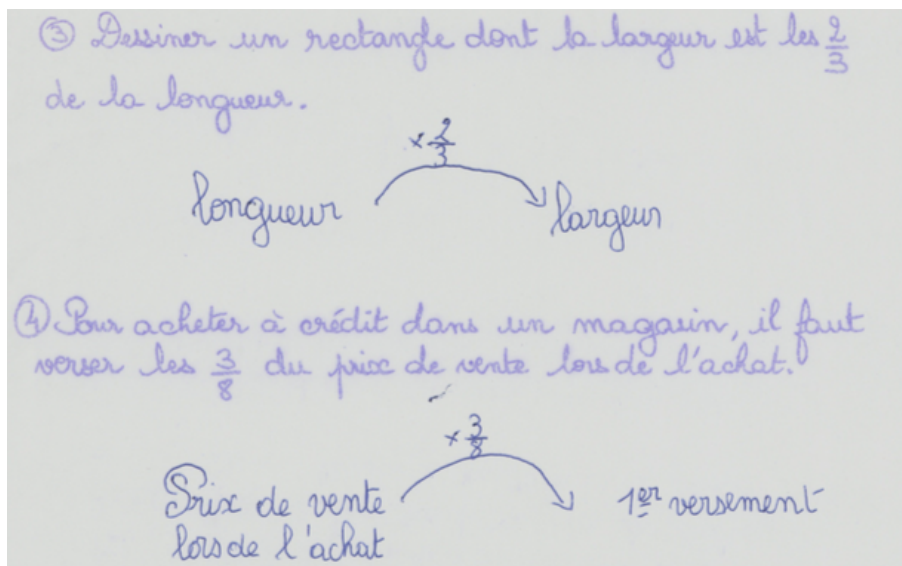 ③ Dessiner un rectangle dont la largeur est les 2/3
de la longueur.
× 2/3
longueur largeur
④ Pour acheter à crédit dans un magasin, il faut
verser les 3/8 du prix de vente lors de l'achat.
× 3/8
Prix de vente 1er versement
lors de l'achat